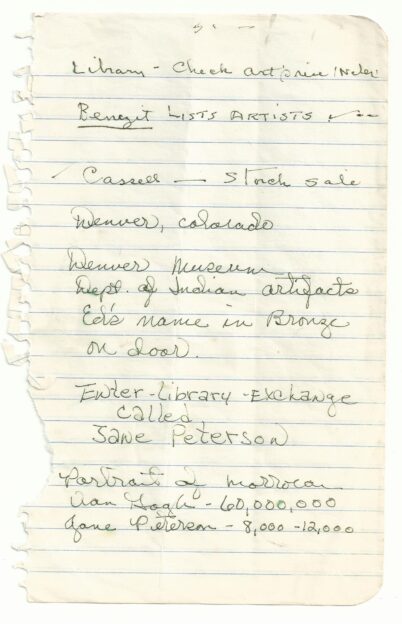 Library - Check art price index
Benezit LISTS ARTISTS
Cassell - Stock sale
Denver, Colorado
Denver Museum
Dept. of Indian artifacts
Ed's name in Bronze
on door.
Enter-Library-Exchange
Called
Jane Peterson
Portrait of Morrocan
Van Gogh - 60,000,000
Jane Peterson - 8,000 - 12,000